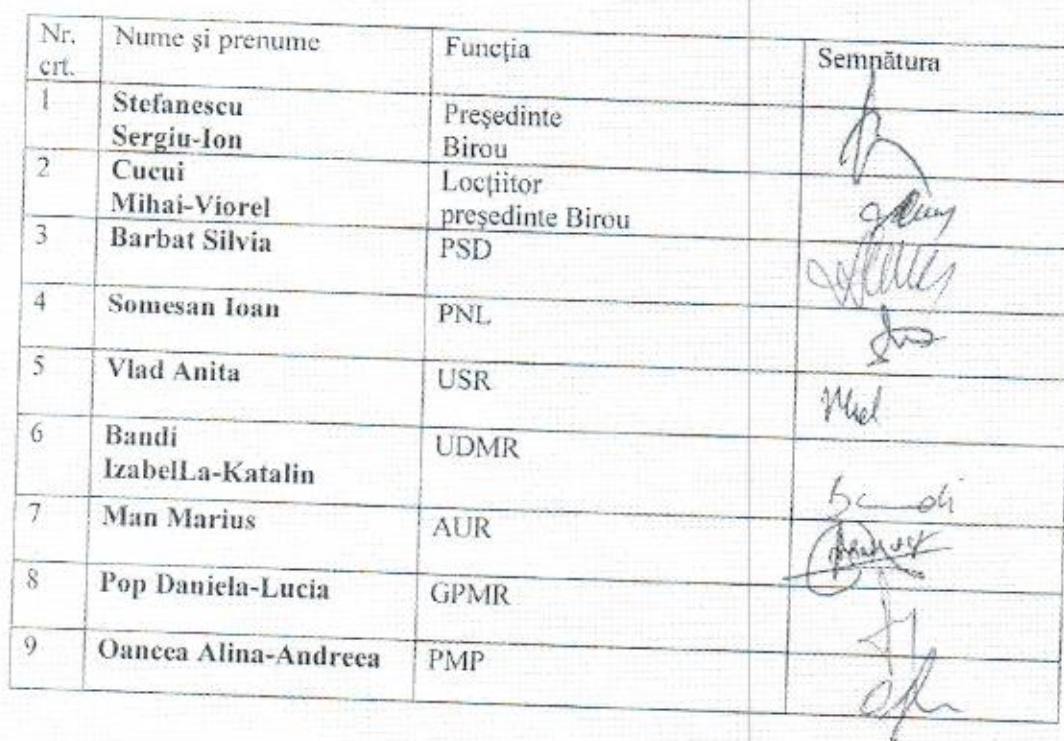 Nr. crt. Nume și prenume Funcția Semnătura
1 Stefanescu Sergiu-Ion Președinte Birou
2 Cucui Mihai-Viorel Locțiitor președinte Birou
3 Barbat Silvia PSD
4 Somesan Ioan PNL
5 Vlad Anita USR Vlad
6 Bandi IzabelLa-Katalin UDMR Bandi
7 Man Marius AUR
8 Pop Daniela-Lucia GPMR
9 Oancea Alina-Andreea PMP